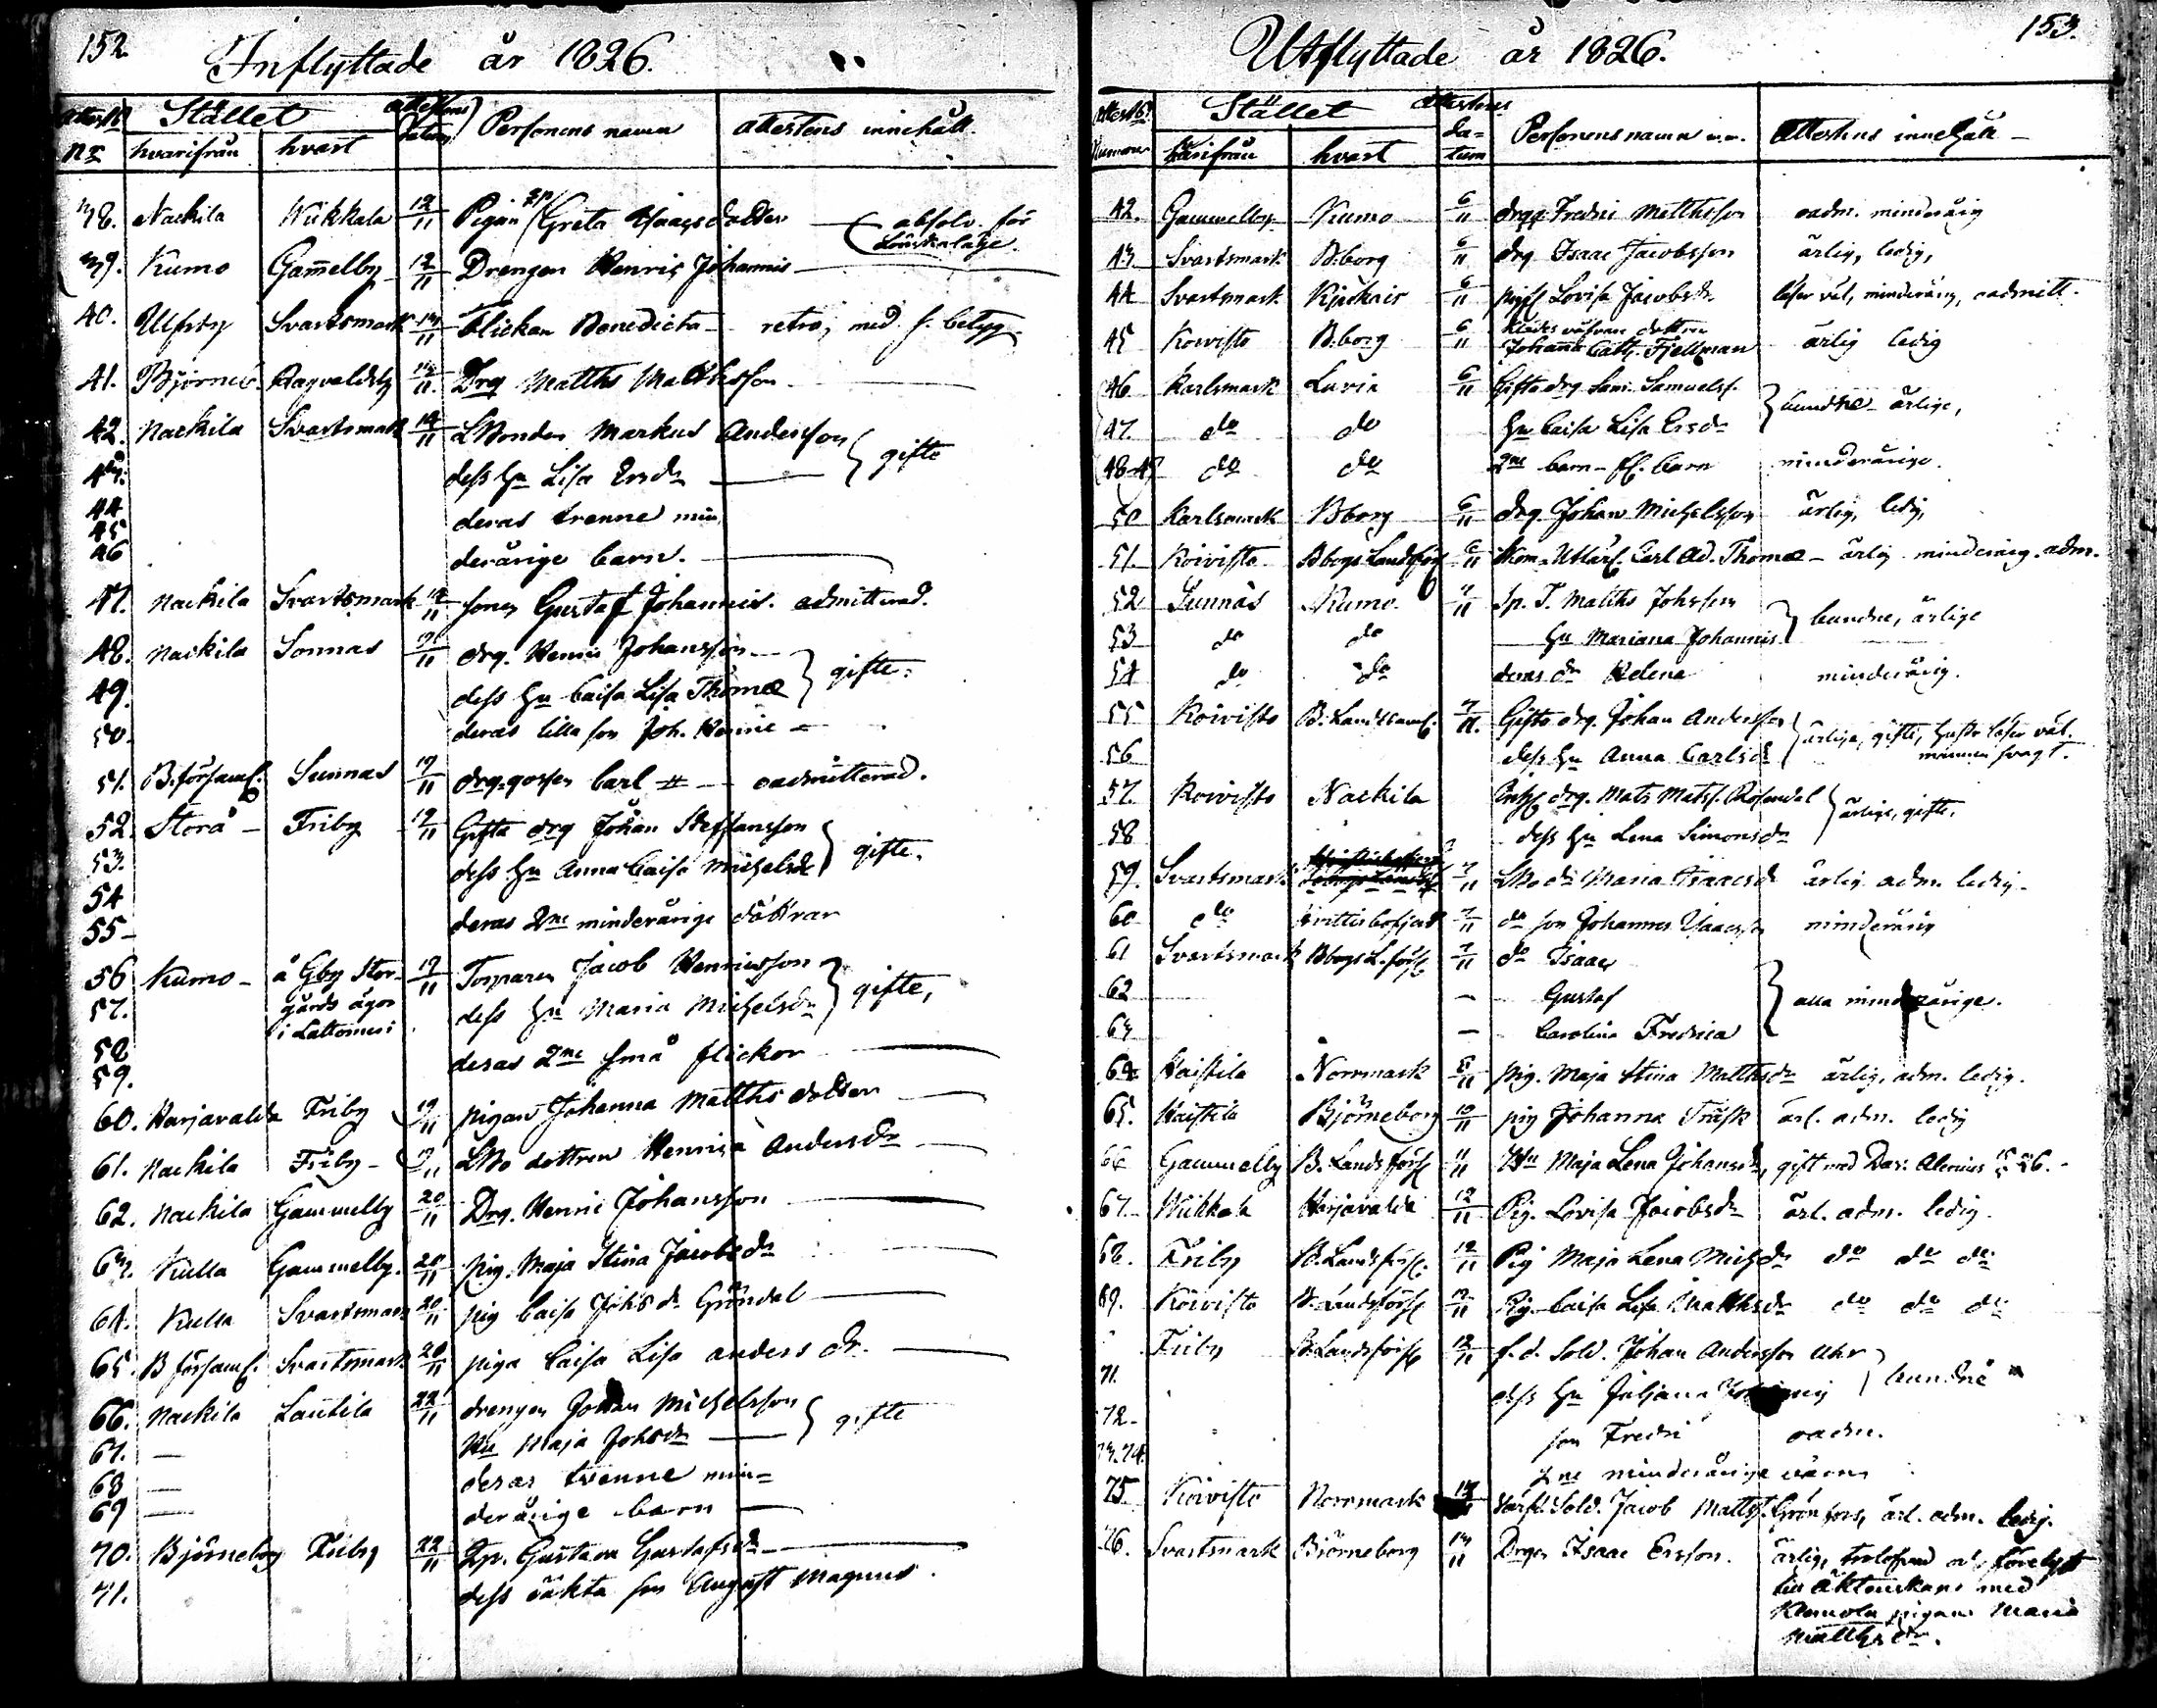 152
Inflyttade år 1826.
Stället
Personens namn
attestens innehåll.
nr hvarifrån hvart
38. Nackila Wiikkala 12/11 Pigan Greta Isaacsdotter absolv. för
39. Kumo Gammelby 12/11 Drengen Henric Johannis
40. Ulfsby Svartsmark 13/11 Flickan Benedicta retro, med f. betyg
41. Björneb. Ragvaldsby 13/11 Drg Matths Matthsson
42. Nackila Svartsmark 14/11 Markus Andersson
gifte
43. dess hu Lisa Ersdr
44 deras trenne min
45
46 derårige barn.
47. Nackila Svartsmark 19/11 sonen Gustaf Johannis. admitterad.
48. Nackila Sonnas 19/11 drg. Henric Johansson
gifte.
49. dess hu Caisa Lisa Thomæ
50. deras lilla son Joh. Henric
51. B. församl. Sunnas 19/11 drg. gossen Carl oadmitterad.
52. Storå Friby 19/11 Gifta drg Johan Steffansson
gifte.
53. dess hu Anna Caisa Michelsdr
54
deras 2ne minderårige döttrar
55
56 Kumo å Gby Stor- 19/11 Torparen Jacob Henricsson
gifte,
57. gårds ägor dess hu Maria Michelsdr
i Lattomeri
58 deras 2ne små flickor
59.
60. Harjavalda Friby 19/11 pigan Johanna Matths dotter
61. Nackila Friby 19/11 dottren Henrica Andersdr
62. Nackila Gammelby 20/11 Drg. Henric Johansson
63. Kulla Gammelby. 20/11 pig. Maja Stina Jacobsdr
64. Kulla Svartsmark 20/11 pig Caisa Johs dr Gröndal
65. B församl. Svartsmark 20/11 piga Caisa Lisa Anders dr.
66. Nackila Lautila 22/11 drengen Johan Michelsson
gifte
67. Hu Maja Johsdr
68 deras tvenne min-
69 derårige barn
70. Björneborg Friby 22/11 Gustava Gustafsdr
71. dess oäkta son August Magnus.
153.
Utflyttade år 1826.
Stället
attestens
Personens namn
attestens innehåll
härifrån hvart datum
42. Gammelby Kumo 6/11 drg. Fredric Matthsson oadm. minderårig
43. Svartsmark B:borg 6/11 drg Isaac Jacobsson ärlig, ledig,
44 Svartsmark 6/11 Lovisa Jacobsdr läser väl, minderårig, oadmitt.
45 Koivisto B:borg 6/11 dottren
Johanna Cath. Fjellman ärlig ledig
46 Karlsmark Luvia 6/11 Gifta drg Sam. Samuelss.
bundne ärlige,
47. do do hu Caisa Lisa Ersdr
48-49 do do 2ne barn minderårige.
50 Karlsmark Bborg 6/11 drg. Johan Michelsson ärlig, ledig,
51. Koivisto Bborgs Landsförs 6/11 Carl Ad. Thomæ ärlig minderårig. adm.
52 Sunnäs Kumo. 7/11 Matths Johsson
bundne, ärlige
53 do do hu Mariana Johannis.
54 do do deras dr Helena minderårig.
55 Koivisto B. Landsförsaml. 7/11. Gifta drg. Johan Andersson
ärlige, gifte, hustr läser väl.
56 dess hu Anna Carlsdr
minnen svagt.
57. Koivisto Nackila drg. Mats Matss. Rosendal
ärlige, gifte,
58 dess hu Lena Simonsdr
59. Svartsmark 7/11 dr Maria Isaacsdr ärlig adm. ledig
60 do 7/11 do son Johannes Isaacsson minderårig
61 Svartsmark Bborgs L. förs 7/11 do Isaac
62 Gustaf
alla minderårige.
63 Carolina Fredrica
64 Haistila Norrmark 8/11 pig. Maja Stina Matthsdr ärlig, adm. ledig.
65. Haistila Björneborg 10/11 pig Johanna Träsk ärl. adm. ledig
66 Gammelby B. Landsförs 11/11 Maja Lena Johansdr, gift med
67. Wiikkala Harjavalda 12/11 Pig. Lovisa Jacobsdr ärl. adm. ledig.
68. Friby B. Landsförs. 12/11 Pig Maja Lena Michsdr do do do
69. Koivisto B. Landsförs 12/11 Pig. Caisa Lisa Matthsdr do do do
Friby B. Landsförs 12/11 f.d. Sold. Johan Andersson Uhr
bundne
71. dess hu Juliana
72 son Fredric oadm.
73.74. 2ne minderårige
75 Koivisto Norrmark Sold. Jacob Matths. Grönfors, ärl. adm. ledig.
76. Svartsmark Björneborg 13/11 Drgen Isaac Ersson. ärlig, trolofvad och förelyst
till äktenskap med
pigan Maria
Matthsdr.